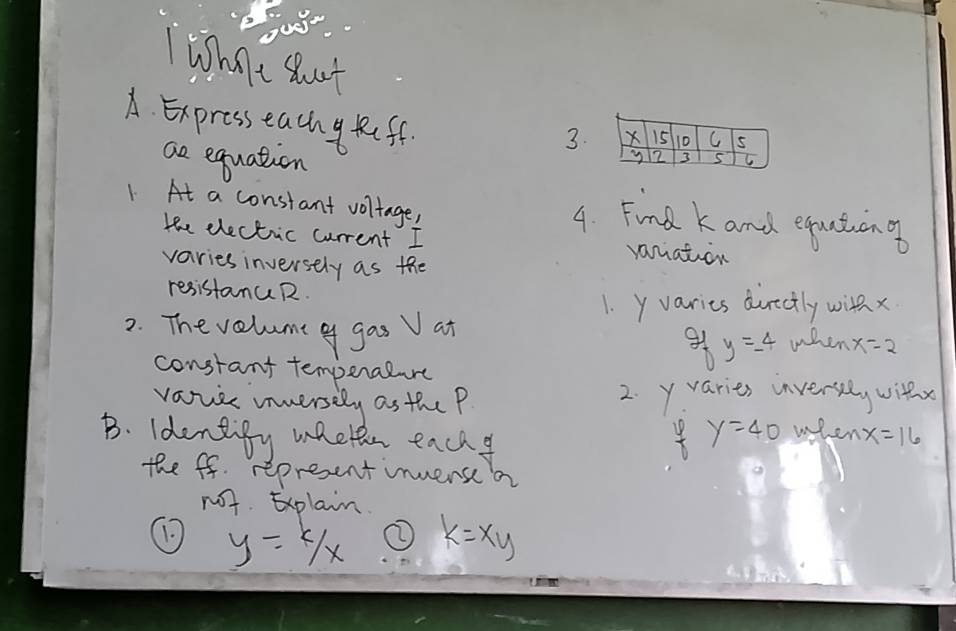 1 Whole sheet
A. Express each of the ff.
as equation
1. At a constant voltage,
the electric current I
varies inversely as the
resistance R.
2. The volume of gas V at
constant temperature
varies inversely as the P.
B. Identify whether each of
the ff. represent inverse or
not. Explain.
① y = k/x ② k = xy
3.
x 15 10 6 5
y 2 3 5 6
4. Find k and equation of
variation
1. y varies directly with x.
If y = -4 when x = 2
2. y varies inversely with x
if y = 40 when x = 16